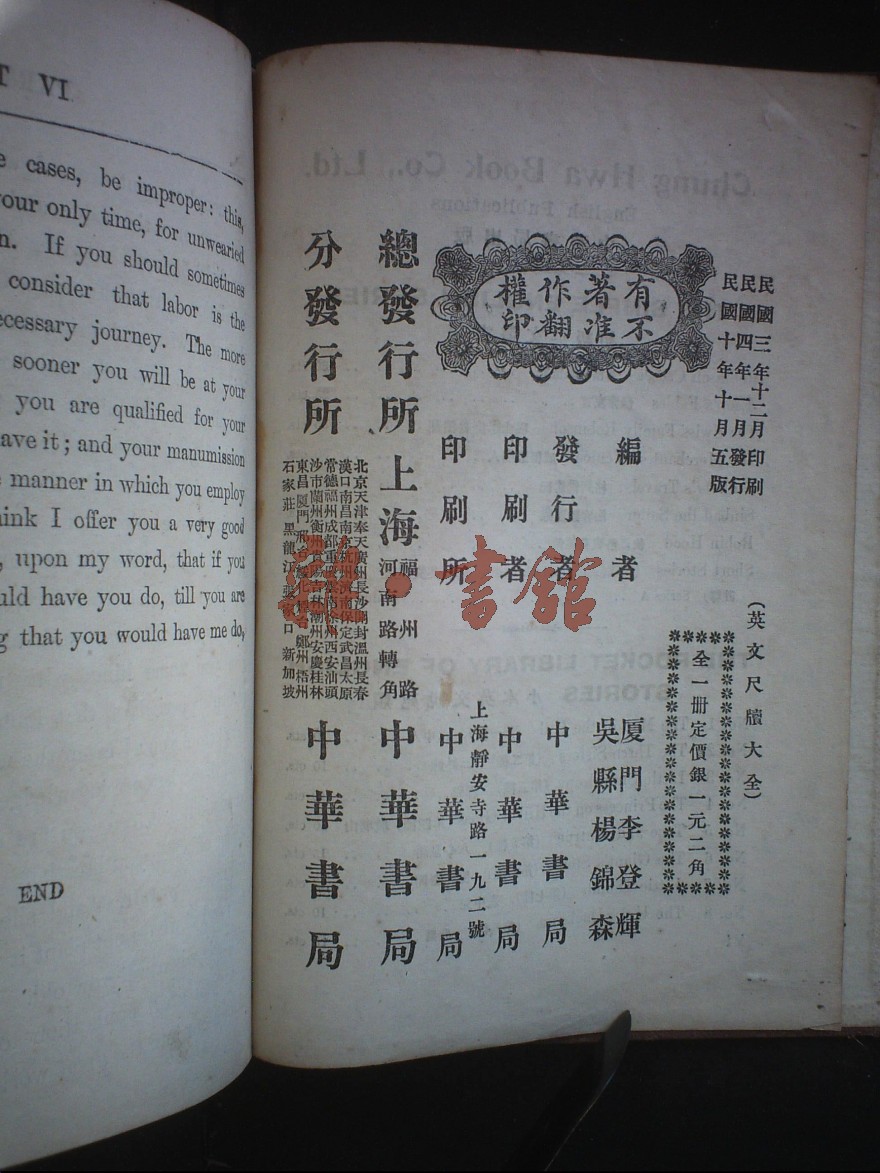 T VI
cases, be improper: this,
your only time, for unwearied
n. If you should sometimes
consider that labor is the
ecessary journey. The more
sooner you will be at your
you are qualified for your
ave it; and your manumission
manner in which you employ
hink I offer you a very good
, upon my word, that if you
uld have you do, till you are
g that you would have me do,
END
民國三年十二月印刷
民國四年一月發行
民國十年十月五版
(英文尺牘大全)
全一冊定價銀一元二角
有不
著准
作翻
權印
編者
廈門李登輝
吳縣楊錦森
發行者 中華書局
印刷者 中華書局
印刷所
上海靜安寺路一九二號
中華書局
總發行所 上海 福州路 河南路轉角 中華書局
分發行所
北京天津奉天廣州長沙開封溫州長春
漢口南昌南京杭州濟南保定武昌太原
常德福州成都重慶 徐州西安汕頭
沙市蘭州衡州貴陽吉林潮州安慶桂林
東昌廈門 鄭州梧州
石家莊 黑龍江 張家口 新加坡
中華書局
Chung Hwa Book Co., Ltd.
English Publications
書館